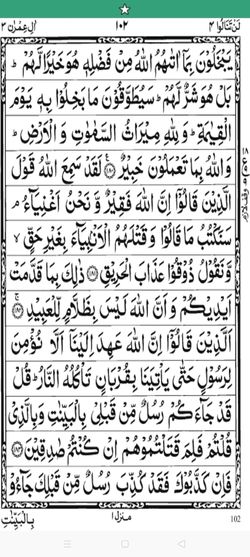 لَنْ تَنَالُوا ٤ ١٠٢ اٰلِ عِمْرٰن ٣
يَبْخَلُوْنَ بِمَاۤ اٰتٰىهُمُ اللّٰهُ مِنْ فَضْلِهٖ هُوَ خَيْرًا لَّهُمْ ؕ
بَلْ هُوَ شَرٌّ لَّهُمْ ؕ سَيُطَوَّقُوْنَ مَا بَخِلُوْا بِهٖ يَوْمَ
الْقِيٰمَةِ ؕ وَ لِلّٰهِ مِيْرَاثُ السَّمٰوٰتِ وَ الْاَرْضِ ؕ
وَ اللّٰهُ بِمَا تَعْمَلُوْنَ خَبِيْرٌ ﴿۱۸۰﴾ لَقَدْ سَمِعَ اللّٰهُ قَوْلَ
الَّذِيْنَ قَالُوْۤا اِنَّ اللّٰهَ فَقِيْرٌ وَّ نَحْنُ اَغْنِيَآءُ ۘ
سَنَكْتُبُ مَا قَالُوْا وَ قَتْلَهُمُ الْاَنْۢبِيَآءَ بِغَيْرِ حَقٍّ ۙ
وَّ نَقُوْلُ ذُوْقُوْا عَذَابَ الْحَرِيْقِ ﴿۱۸۱﴾ ذٰلِكَ بِمَا قَدَّمَتْ
اَيْدِيْكُمْ وَ اَنَّ اللّٰهَ لَيْسَ بِظَلَّامٍ لِّلْعَبِيْدِ ﴿۱۸۲﴾
اَلَّذِيْنَ قَالُوْۤا اِنَّ اللّٰهَ عَهِدَ اِلَيْنَاۤ اَلَّا نُؤْمِنَ
لِرَسُوْلٍ حَتّٰى يَاْتِيَنَا بِقُرْبَانٍ تَاْكُلُهُ النَّارُ ؕ قُلْ
قَدْ جَآءَكُمْ رُسُلٌ مِّنْ قَبْلِيْ بِالْبَيِّنٰتِ وَ بِالَّذِيْ
قُلْتُمْ فَلِمَ قَتَلْتُمُوْهُمْ اِنْ كُنْتُمْ صٰدِقِيْنَ ﴿۱۸۳﴾
فَاِنْ كَذَّبُوْكَ فَقَدْ كُذِّبَ رُسُلٌ مِّنْ قَبْلِكَ جَآءُوْ
بِالْبَيِّنٰتِ منزل ١ 102